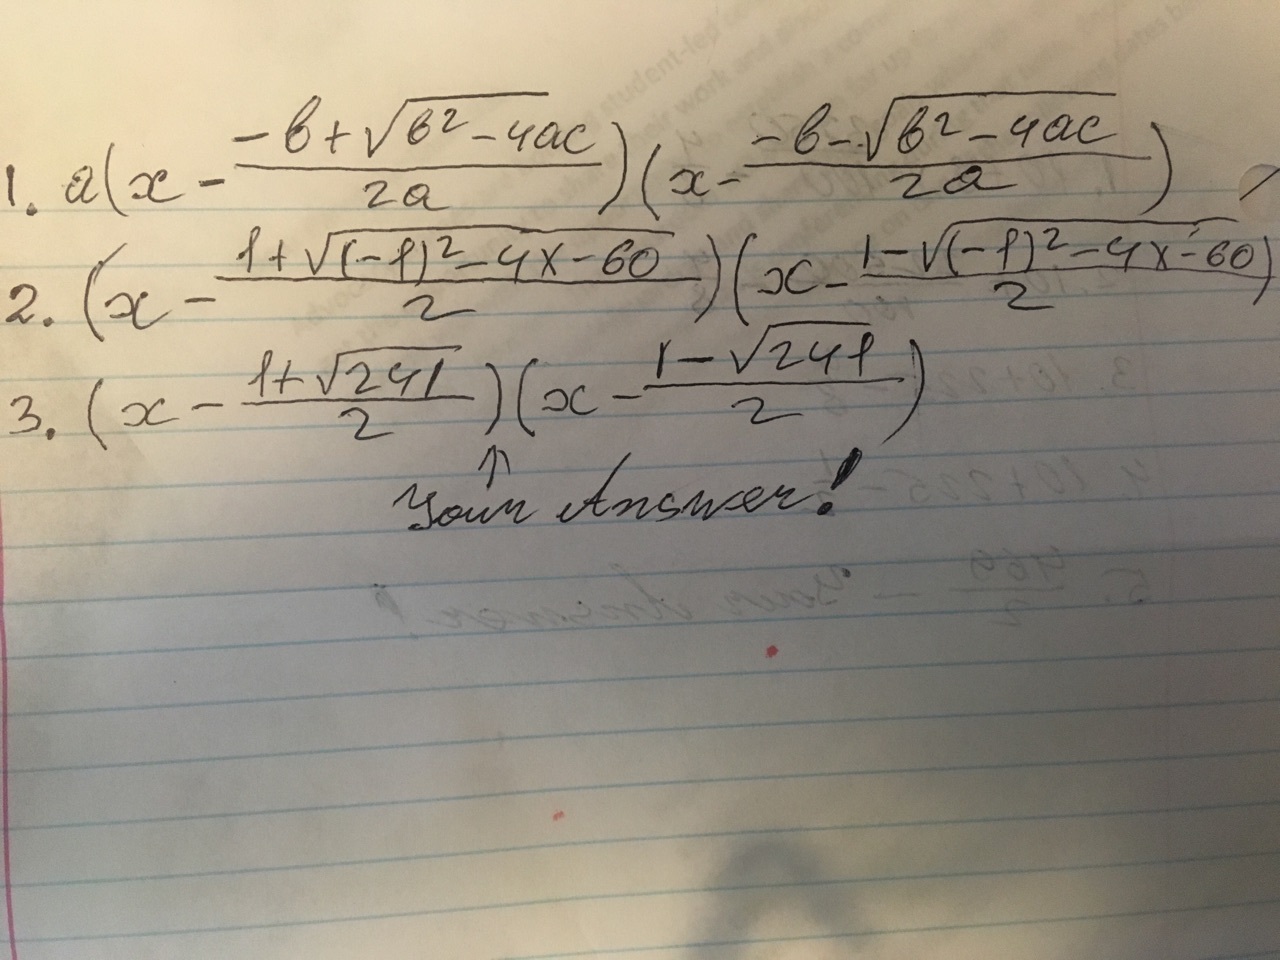 1. a(x - \frac{-b+\sqrt{b^2-4ac}}{2a})(x - \frac{-b-\sqrt{b^2-4ac}}{2a})
2. (x - \frac{1+\sqrt{(-1)^2-4x-60}}{2})(x - \frac{1-\sqrt{(-1)^2-4x-60}}{2})
3. (x - \frac{1+\sqrt{241}}{2})(x - \frac{1-\sqrt{241}}{2})
↑
Your Answer!